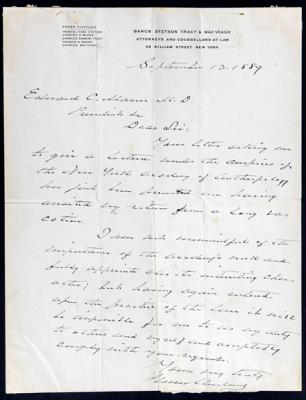 GROVER CLEVELAND
FRANCIS LYNDE STETSON
CHARLES EDWARD TRACY
CHARLES MACVEAGH
BANGS STETSON TRACY & MACVEAGH
ATTORNEYS AND COUNSELLORS AT LAW
45 WILLIAM STREET NEW YORK.
September 13. 1889
Edward C. Mann M.D.
President &c
Dear Sir:
Your letter asking me
to give a lecture under the auspices of
the New York Academy of Anthropology
has just been received it having
awaited my return from a long vac-
ation.
I am not unmindful of the
importance of the Academy's work and
fully appreciate also its interesting char-
acter; but having again entered
upon the practice of the law it will
be impossible for me to do my duty
to others and myself and acceptably
comply with your request.
Yours very truly
Grover Cleveland